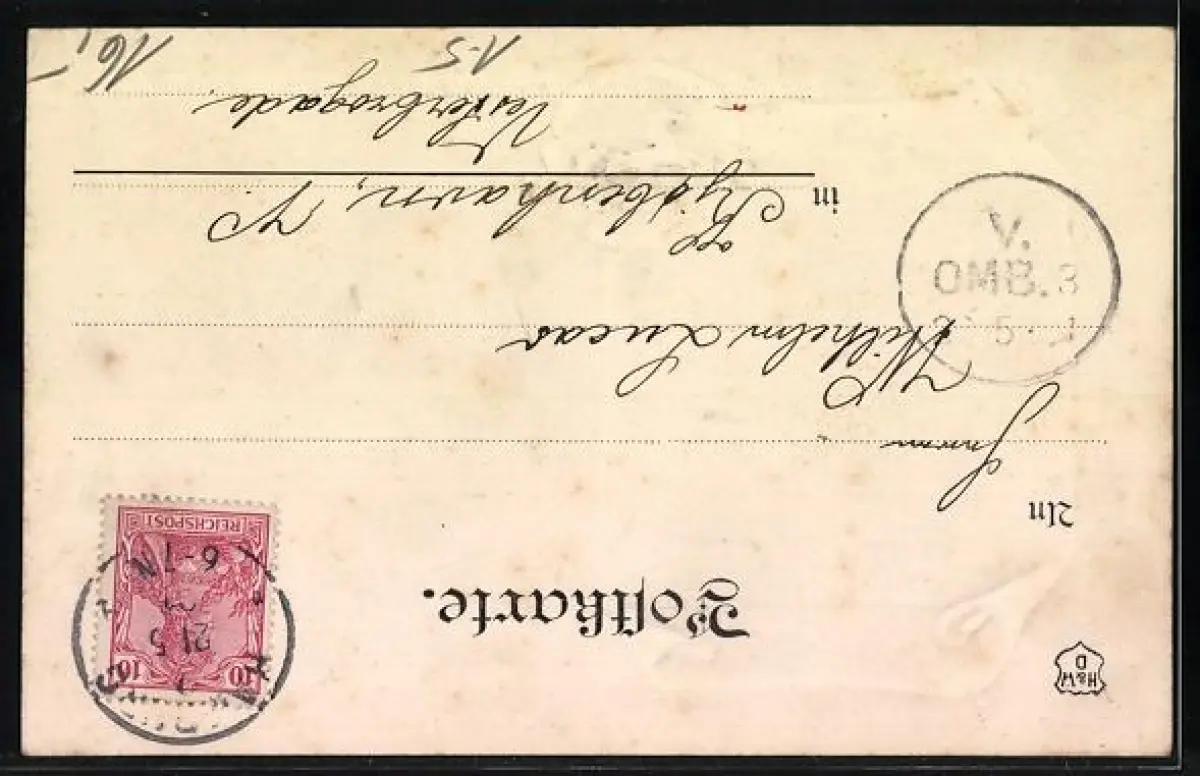 H&W
D
Postkarte.
10 10
REICHSPOST
21 5
6-7N
An
Herrn
Wilhelm Lucas
in
Kjöbenhavn, V.
Vesterbrogade
V.
OMB.3
5
1-5
16,-